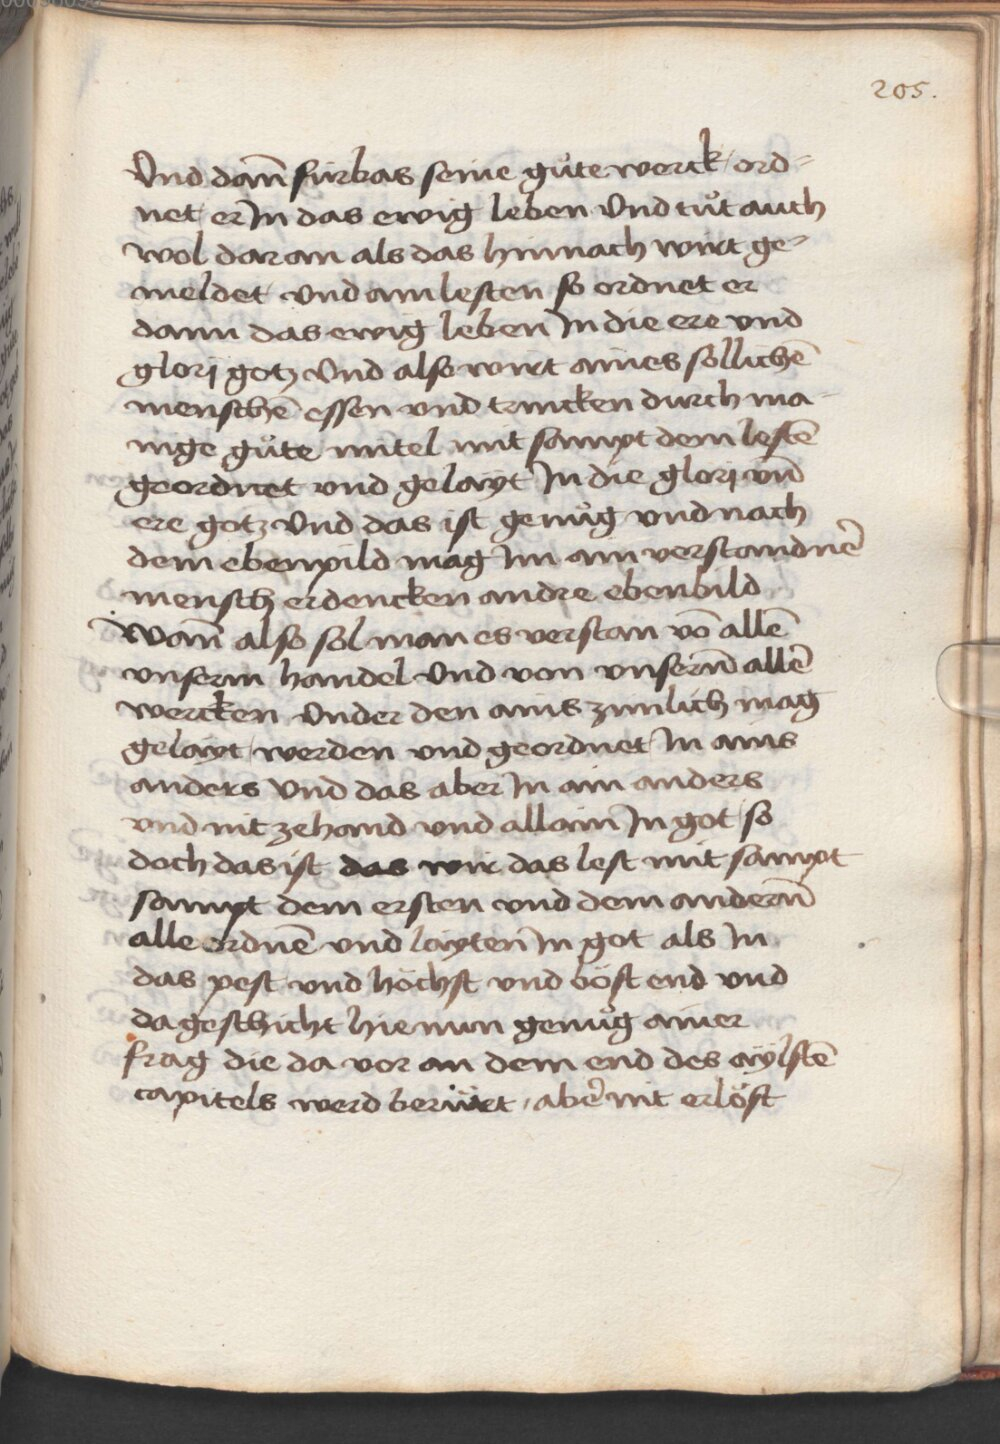 205.
Vnd dañ fürbas seine gůte werck ord-
net er In das ewig leben Vnd tůt auch
wol dar an als das hinnach wirt ge-
meldet vnd am lesten so ordnet er
dann das ewig leben In die ere vnd
glorj gotz Vnd also wirt aines sollichē
menschē essen vnd trincken durch ma-
nige gůte mitel mit sampt dem lestē
geordnet vnd gelayt In die glorj vñ
ere gotz Vnd das ist genůg vnd nach
dem ebenpild mag Im ain verstandnē
mensch erdencken andre ebenbild
Wañ also sol man es verstan võ allē
vnserm handel Vnd von vnserñ allē
wercken Vnder den ains zimlich mag
gelayt werden vnd geordnet In ains
anders Vnd das aber In ain anders
vnd nit zehand vnd allain In got so
doch das ist das wir das lest mit sampt
sampt dem ersten vnd dem anderñ
alle ordnē vnd layten In got als In
das pest vnd höchst vnd böst end vnd
da geschicht hie nun genůg ainer
frag die da vor an dem end des aylstē
capitels werd berürt, aber nit erlöst